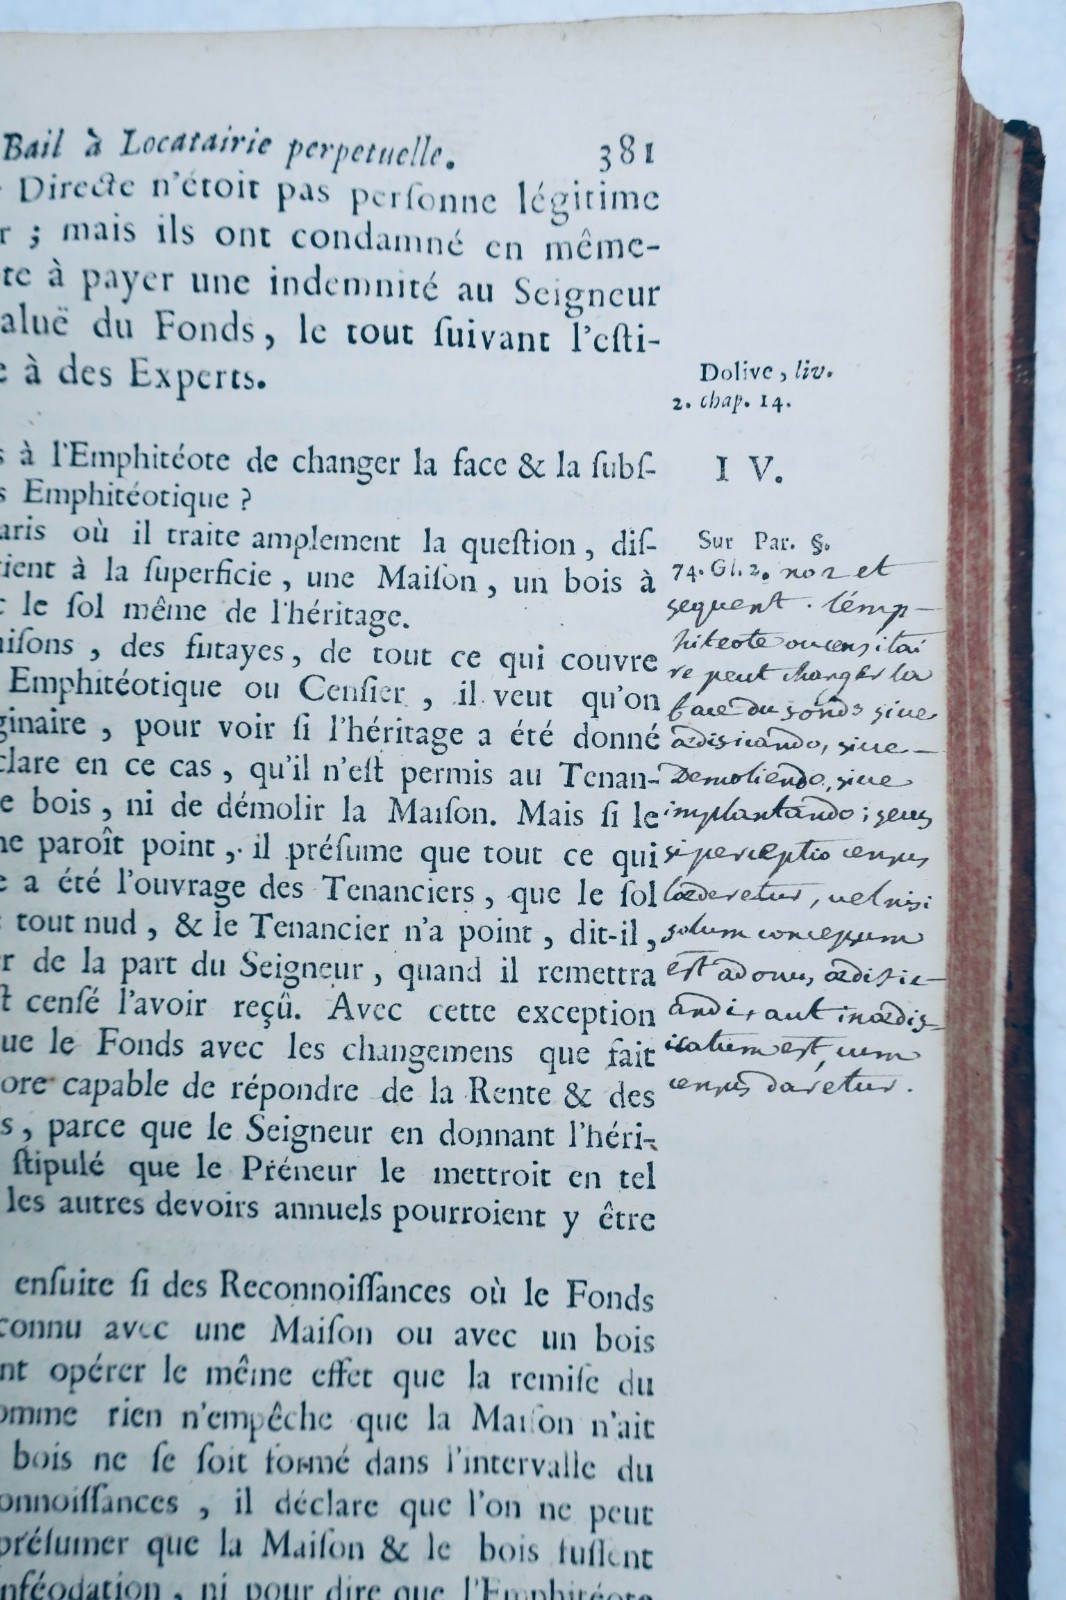 Bail à Locatairie perpetuelle. 381
Directe n'étoit pas perſonne légitime
r ; mais ils ont condamné en même-
te à payer une indemnité au Seigneur
aluë du Fonds, le tout ſuivant l'eſti-
e à des Experts.
Dolive, liv.
2. chap. 14.
s à l'Emphitéote de changer la face & la ſubſ-
s Emphitéotique ?
IV.
aris où il traite amplement la queſtion, diſ-
tient à la ſuperficie, une Maiſon, un bois à
t le ſol même de l'héritage.
aiſons, des futayes, de tout ce qui couvre
Emphitéotique ou Cenſier, il veut qu'on
ginaire, pour voir ſi l'héritage a été donné
clare en ce cas, qu'il n'eſt permis au Tenan-
e bois, ni de démolir la Maiſon. Mais ſi le
ne paroît point, il préſume que tout ce qui
e a été l'ouvrage des Tenanciers, que le ſol
tout nud, & le Tenancier n'a point, dit-il,
r de la part du Seigneur, quand il remettra
t cenſé l'avoir reçû. Avec cette exception
ue le Fonds avec les changemens que fait
ore capable de répondre de la Rente & des
s, parce que le Seigneur en donnant l'héri-
ſtipulé que le Préneur le mettroit en tel
les autres devoirs annuels pourroient y être
Sur Par. §.
74. Gl. 2. no 2 et
sequent. l'emp-
hiteote ou censitai
re peut changer la
face du fonds sive
ædificando, sive
Demoliendo, sive
implantando ;
si perceptio census
læderetur, vel nisi
solum concessum
est ad onus ædific-
andi, aut inædif-
icatum est, cum
census daretur.
enſuite ſi des Reconnoiſſances où le Fonds
connu avec une Maiſon ou avec un bois
nt opérer le même effet que la remiſe du
omme rien n'empêche que la Maiſon n'ait
bois ne ſe ſoit formé dans l'intervalle du
onnoiſſances, il déclare que l'on ne peut
préſumer que la Maiſon & le bois fuſſent
nféodation, ni pour dire que l'Emphitéote